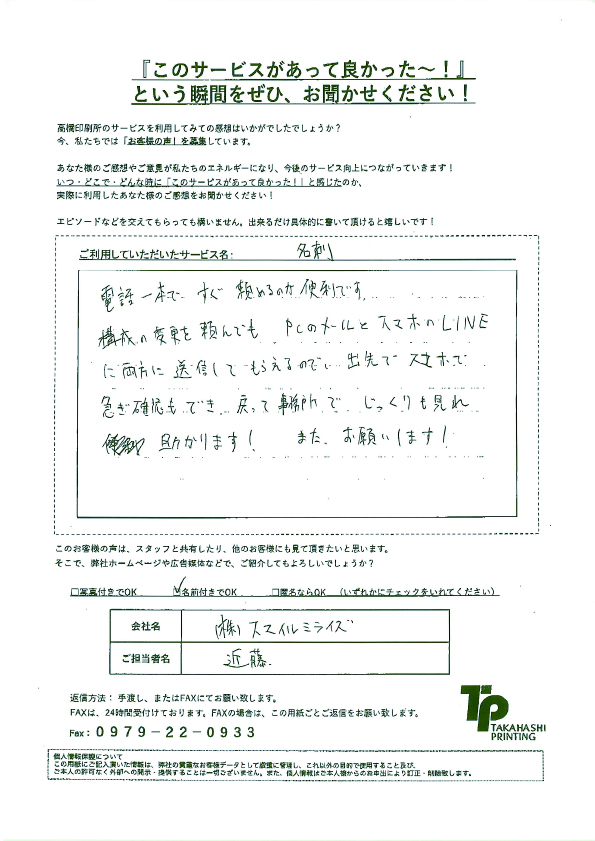 『このサービスがあって良かった～！』
という瞬間をぜひ、お聞かせください！
高橋印刷所のサービスを利用してみての感想はいかがでしたでしょうか？
今、私たちでは『お客様の声』を募集しています。
あなた様のご感想やご意見が私たちのエネルギーになり、今後のサービス向上につながっていきます！
いつ・どこで・どんな時に「このサービスがあって良かった！」と感じたのか、
実際に利用したあなた様のご感想をお聞かせください！
エピソードなどを交えてもらっても構いません。出来るだけ具体的に書いて頂けると嬉しいです！
ご利用していただいたサービス名： 名刺
電話一本で すぐ 頼めるのが便利です。
構成の変更を頼んでも PCのメールとスマホのLINE
に両方に送信してもらえるので、出先でスマホで
急ぎ確認もでき、戻って事務所で じっくりも見れ
助かります！ また、お願いします！
このお客様の声は、スタッフと共有したり、他のお客様にも見て頂きたいと思います。
そこで、弊社ホームページや広告媒体などで、ご紹介してもよろしいでしょうか？
□写真付きでOK ☑名前付きでOK □匿名ならOK （いずれかにチェックをいれてください）
会社名 (株)スマイルミライズ
ご担当者名 近藤
返信方法： 手渡し、またはFAXにてお願い致します。
FAXは、24時間受付けております。FAXの場合は、この用紙ごとご返信をお願い致します。
Fax：0979-22-0933
TP
TAKAHASHI
PRINTING
個人情報保護について
この用紙にご記入頂いた情報は、弊社の貴重なお客様データとして厳重に管理し、これ以外の目的で使用すること及び、
ご本人の許可なく外部への開示・提供することは一切ございません。また、個人情報はご本人様からのお申出により訂正・削除致します。